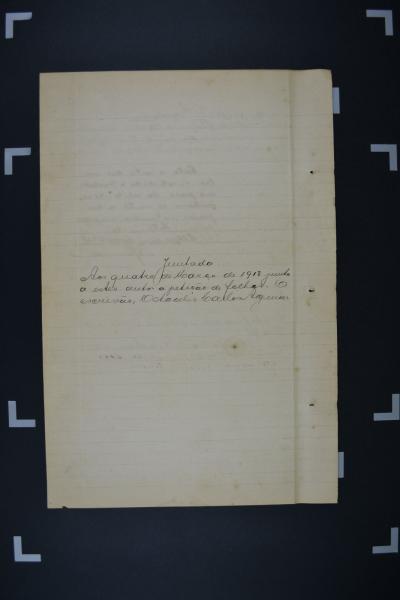 Juntada
Aos quatro de Março de 1918 junto
a estes autos a petição de folhas. O
escrivão, Octavio Carlos